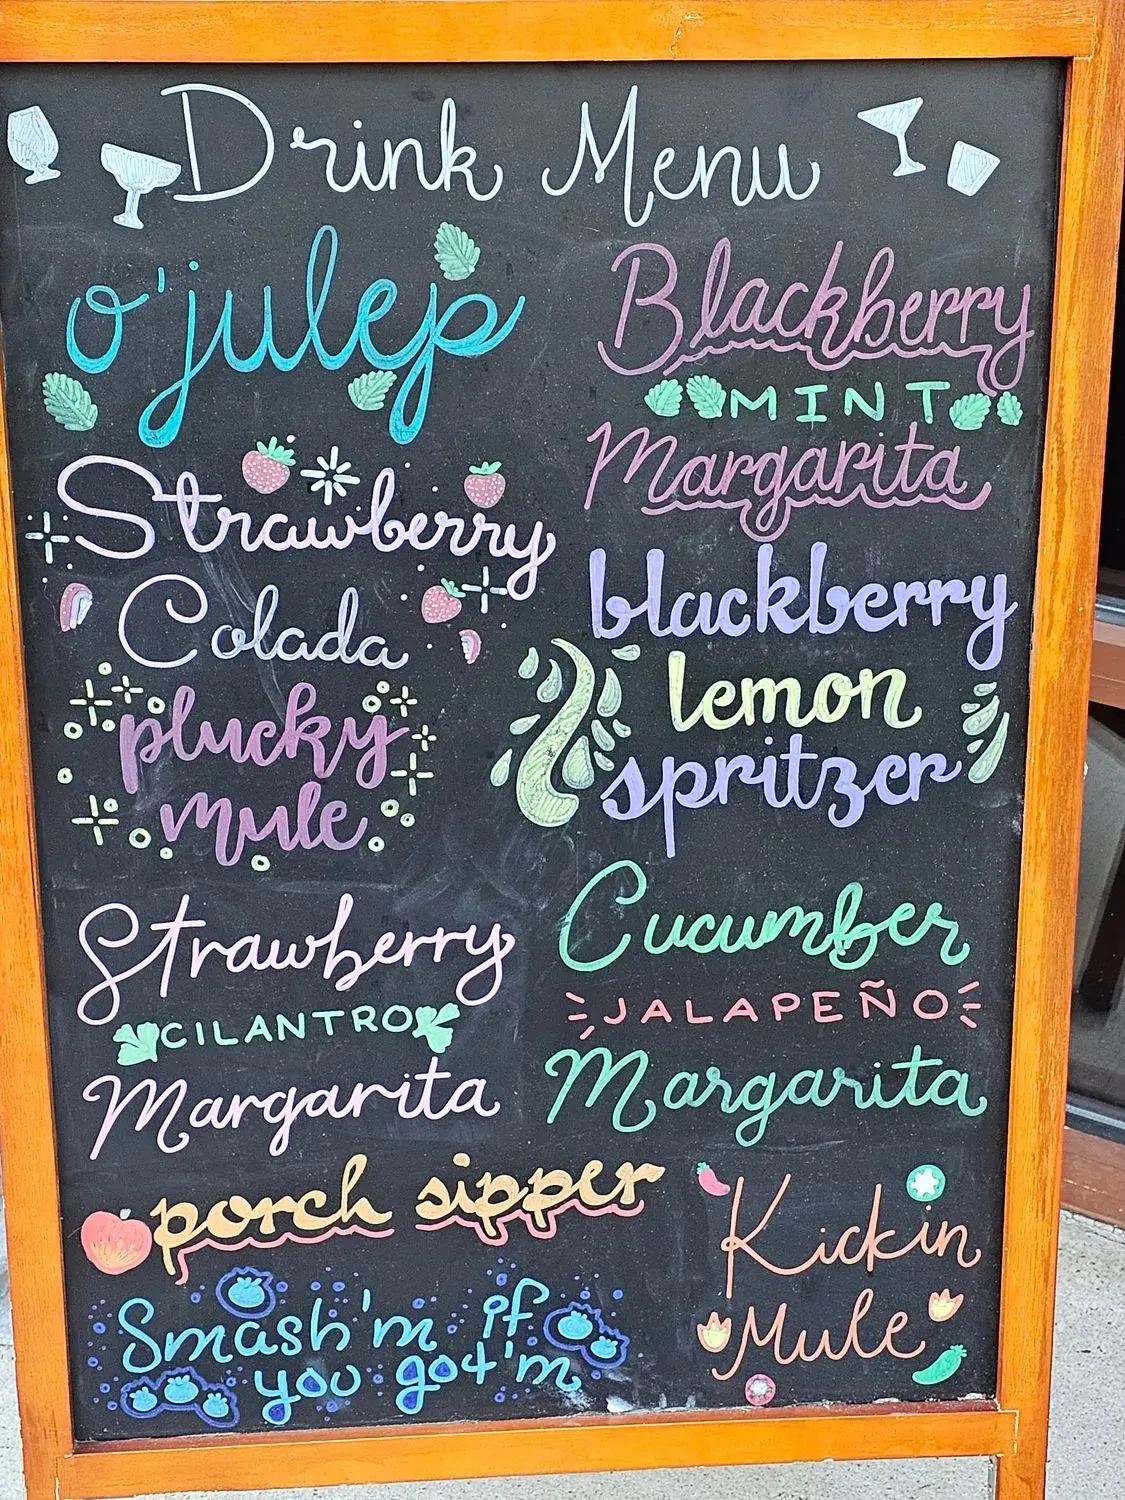 Drink Menu
o'julep
Strawberry
Colada
plucky
mule
Strawberry
CILANTRO
Margarita
porch sipper
Smash'm if
you got'm
Blackberry
MINT
Margarita
blackberry
lemon
spritzer
Cucumber
JALAPEÑO
Margarita
Kickin
Mule